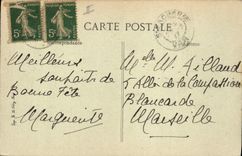 CARTE POSTALE
5c 5c
Meilleurs
souhaits de
Bonne Fête
Marguerite
Melle M. Aillaud
5 Allée de la Compassion
Blancarde
Marseille